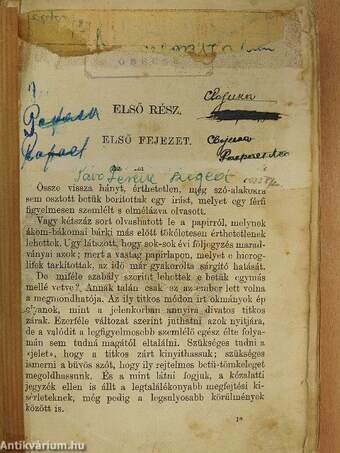 ÓBECSE
ELSŐ RÉSZ.
ELSŐ FEJEZET.
Össze vissza hányt, érthetlen, még szó-alakokra
sem osztott betük borítottak egy írást, melyet egy férfi
figyelmesen szemlélt s elmélázva olvasott.
Vagy kétszáz sort olvashatott le a papirról, melynek
ákom-bákomai bárki más előtt tökéletesen érthetetlenek
lehettek. Ugy látszott, hogy sok-sok évi följegyzés marad-
ványai azok; mert a vastag papirlapon, melyet e hierog-
lifek tarkítottak, az idő már gyakorolta sárgító hatását.
De miféle szabály szerint lehettek e betük egymás
mellé vetve? Annák talán csak az az ember lett volna
a megmondhatója. Az ily titkos módon írt okmányok ép
olyanok, mint a jelenkorban annyira divatos titkos
zárak. Ezerféle változat szerint juthatni azok nyitjára,
de a valódit a legfigyelmesebb szemlélő egész élte folya-
mán sem tudná magától eltalálni. Szükséges tudni a
«jelet», hogy a titkos zárt kinyithassuk; szükséges
ismerni a büvös szót, hogy ily rejtelmes betü-tömkeleget
megoldhassunk. És a mint látni fogjuk, a kézalatti
jegyzék ellen is állt a legtalálékonyabb megfejtési ki-
sérleteknek, még pedig a legsulyosabb körülmények
között is.
1*
antikvárium.hu